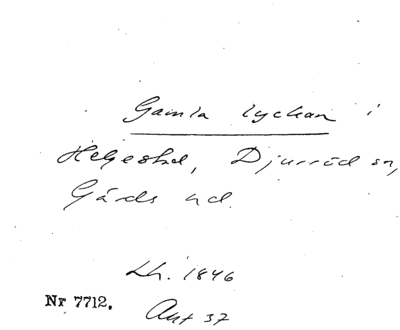 Gamla lyckan i
Helgestad, Djurröd sn,
Gärds hd.
Lh. 1846
Nr 7712. Akt 37